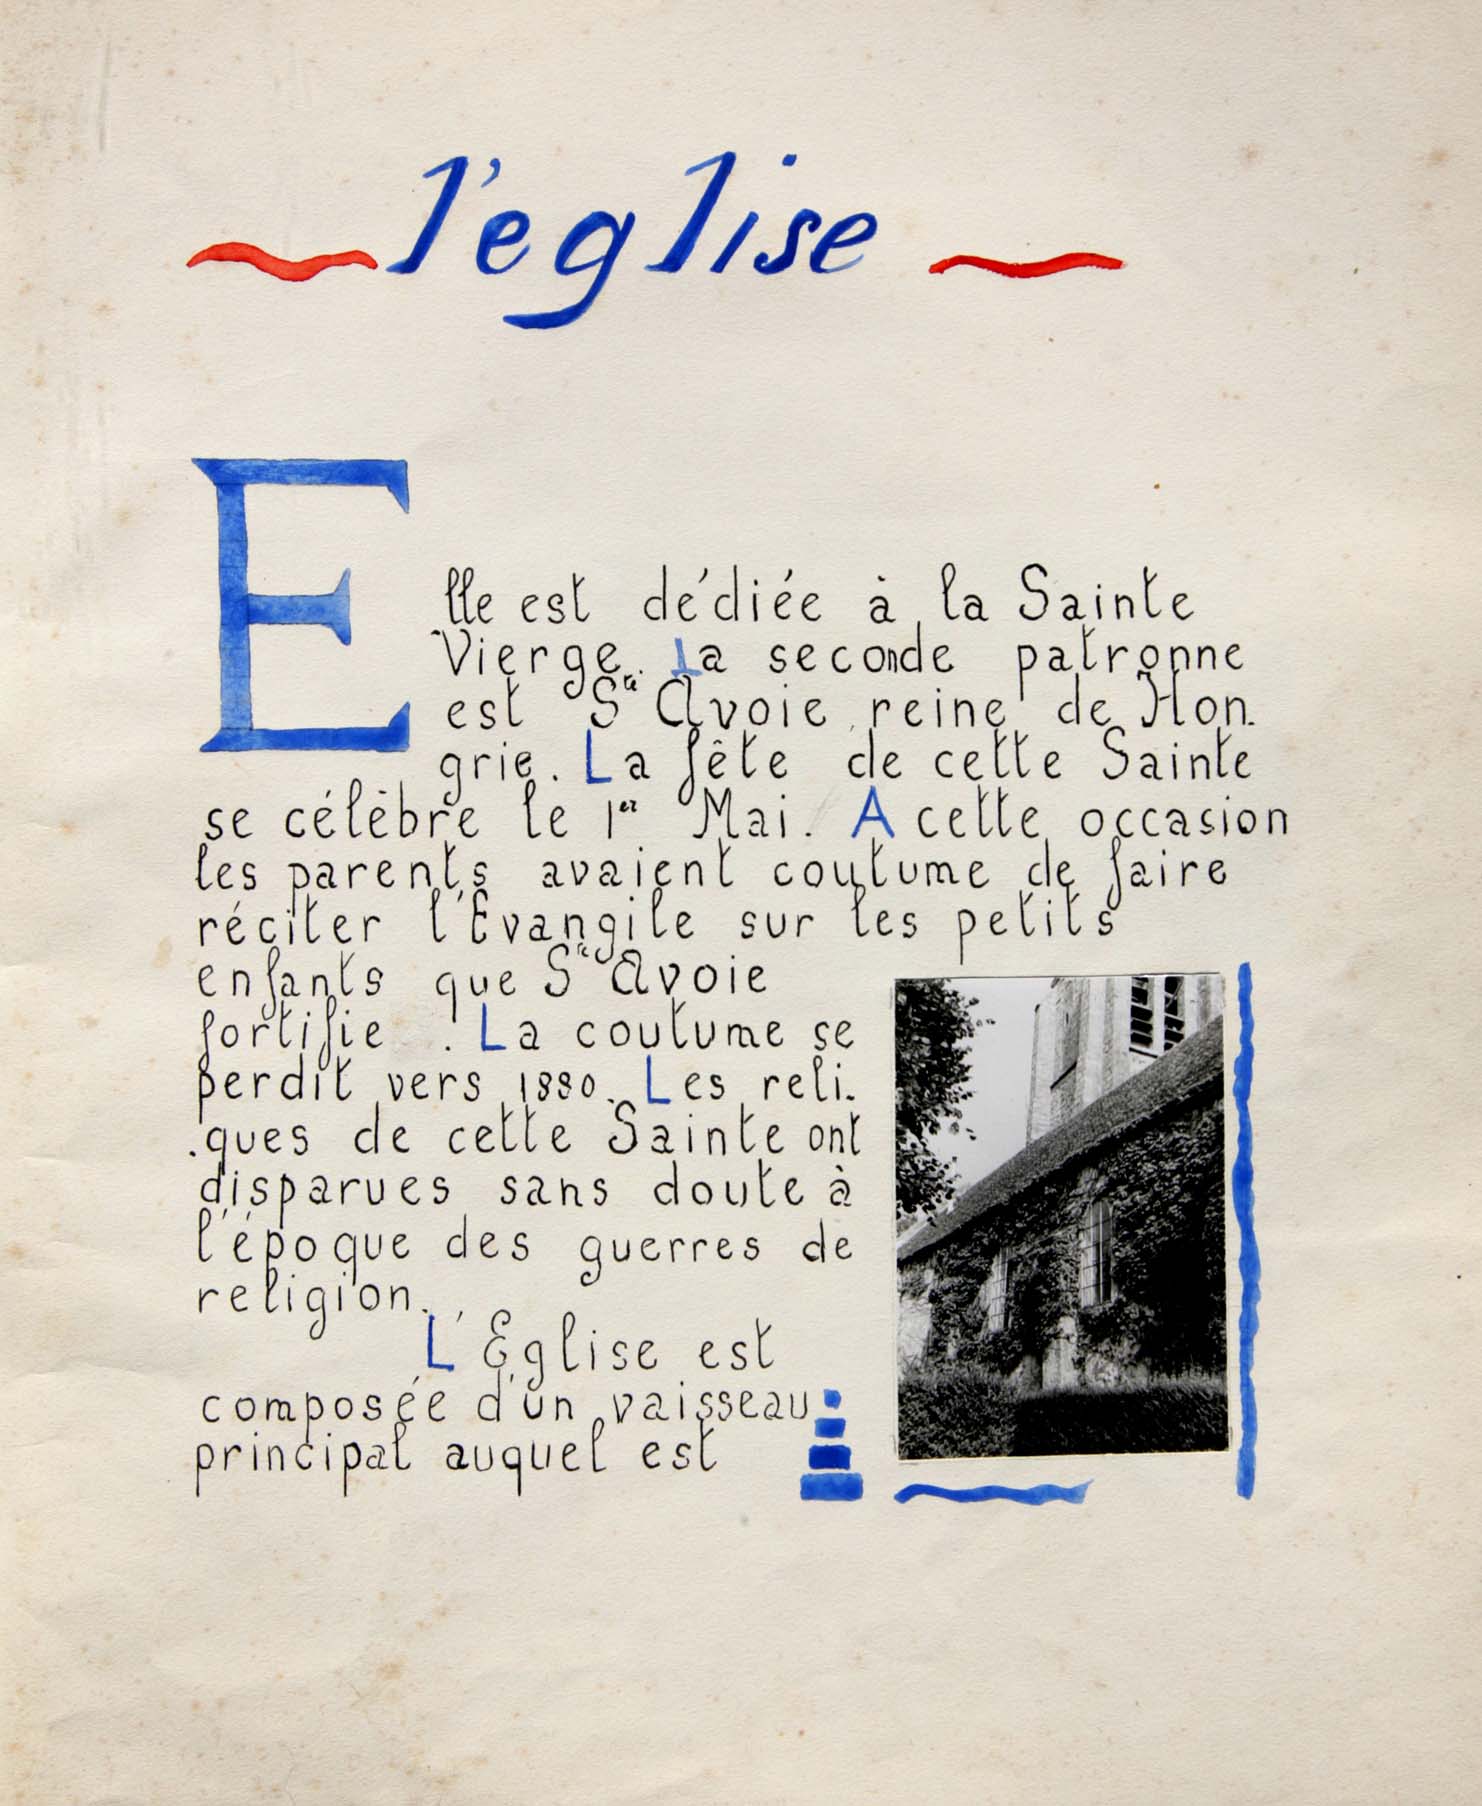 l'eglise
Elle est dédiée à la Sainte
Vierge. La seconde patronne
est Ste Avoie reine de Hon-
grie. La fête de cette Sainte
se célèbre le 1er Mai. A cette occasion
les parents avaient coutume de faire
réciter l'Evangile sur les petits
enfants que Ste Avoie
fortifie. La coutume se
perdit vers 1880. Les reli-
-ques de cette Sainte ont
disparues sans doute à
l'époque des guerres de
religion.
L'Eglise est
composée d'un vaisseau
principal auquel est